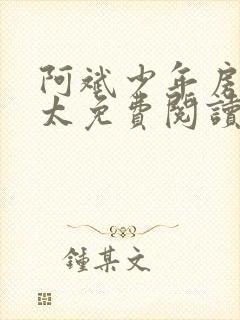 阿斌少年房
太免費閱讀
鍾某文